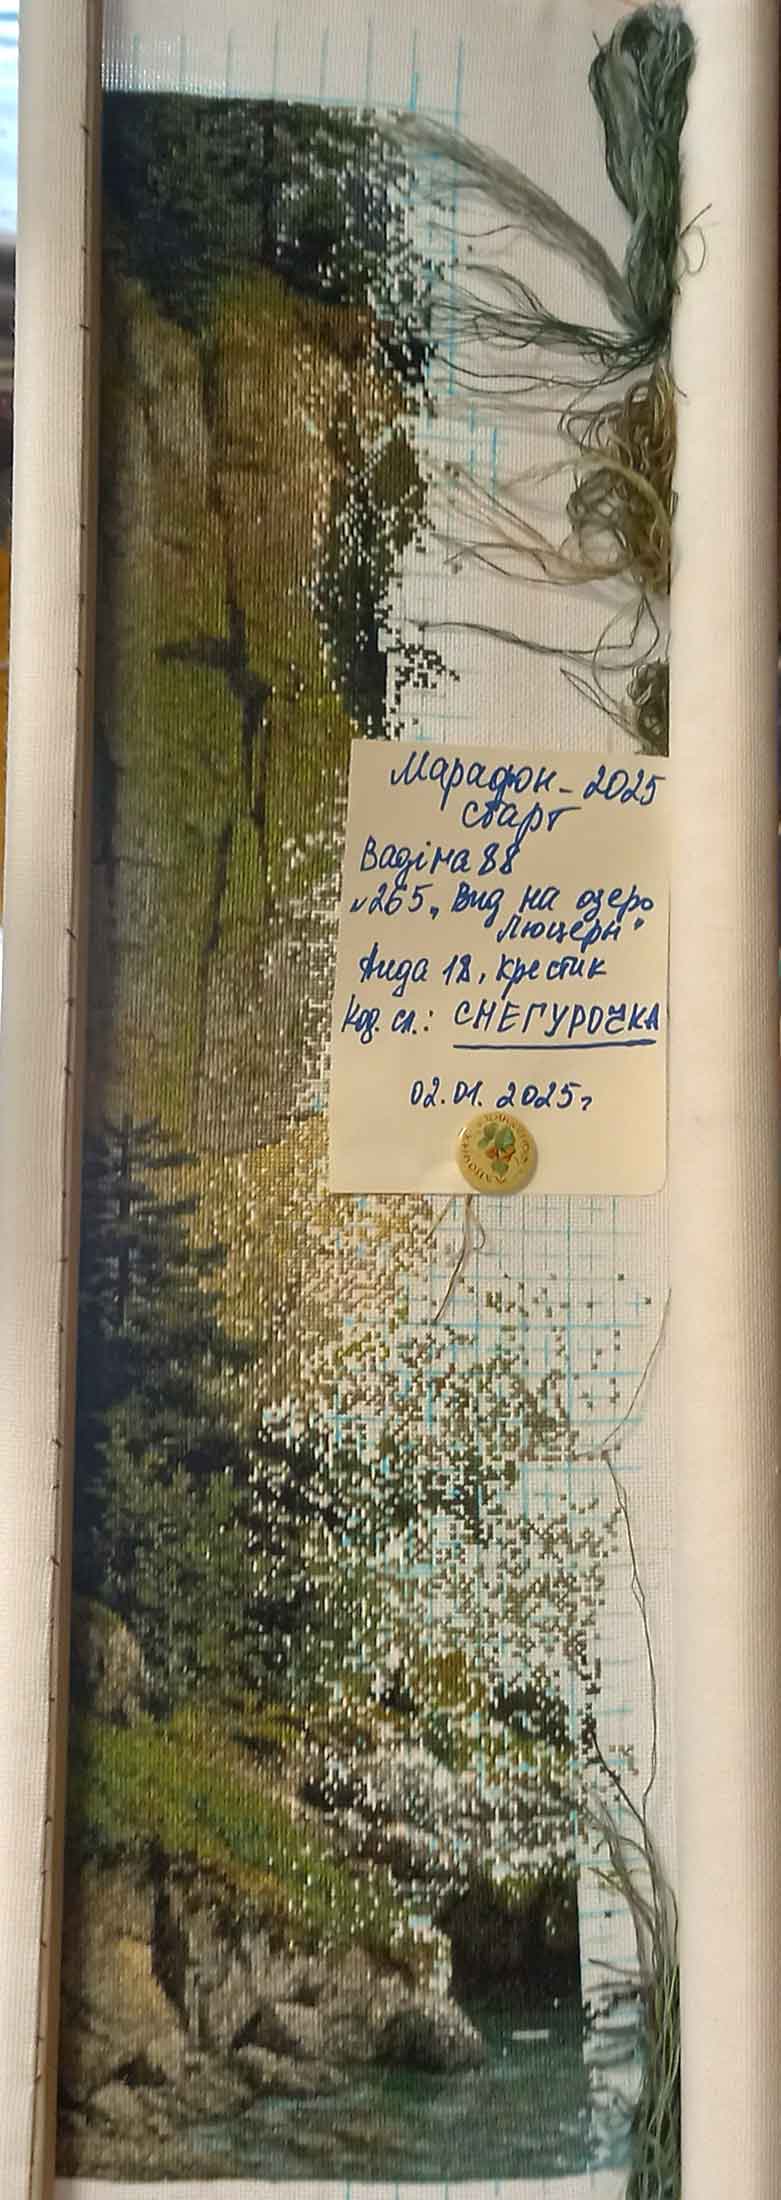 Марафон - 2025
старт
Вадіна 88
v265 „Вид на озеро
Люцерн"
Аида 18, крестик
Код. сл.: СНЕГУРОЧКА
02.01.2025г